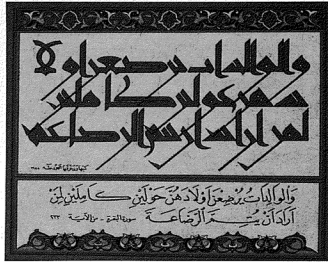 والوالدات يرضعن أولا
دهن حولين كاملين
لمن أراد أن يتم الرضاعة
وَالوَالِدَاتُ يُرْضِعْنَ أَوْلَادَهُنَّ حَوْلَيْنِ كَامِلَيْنِ لِمَنْ
أَرَادَ أَنْ يُتِمَّ الرَّضَاعَةَ سورة البقرة - من الآية ٢٣٣